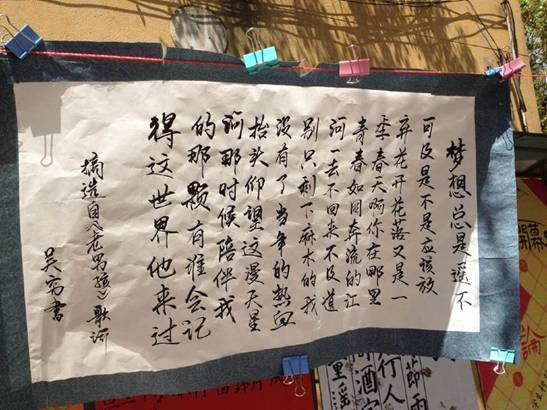 梦想总是遥不
可及是不是应该放
弃花开花落又是一
季春天啊你在哪里
青春如同奔流的江
河一去不回来不及道
别只剩下麻木的我
没有了当年的热血
抬头仰望这漫天星
河那时候陪伴我
的那颗有谁会记
得这世界他来过
摘选自《老男孩》歌词
吴 书
開幕
節雨
行人
酒家
里遥